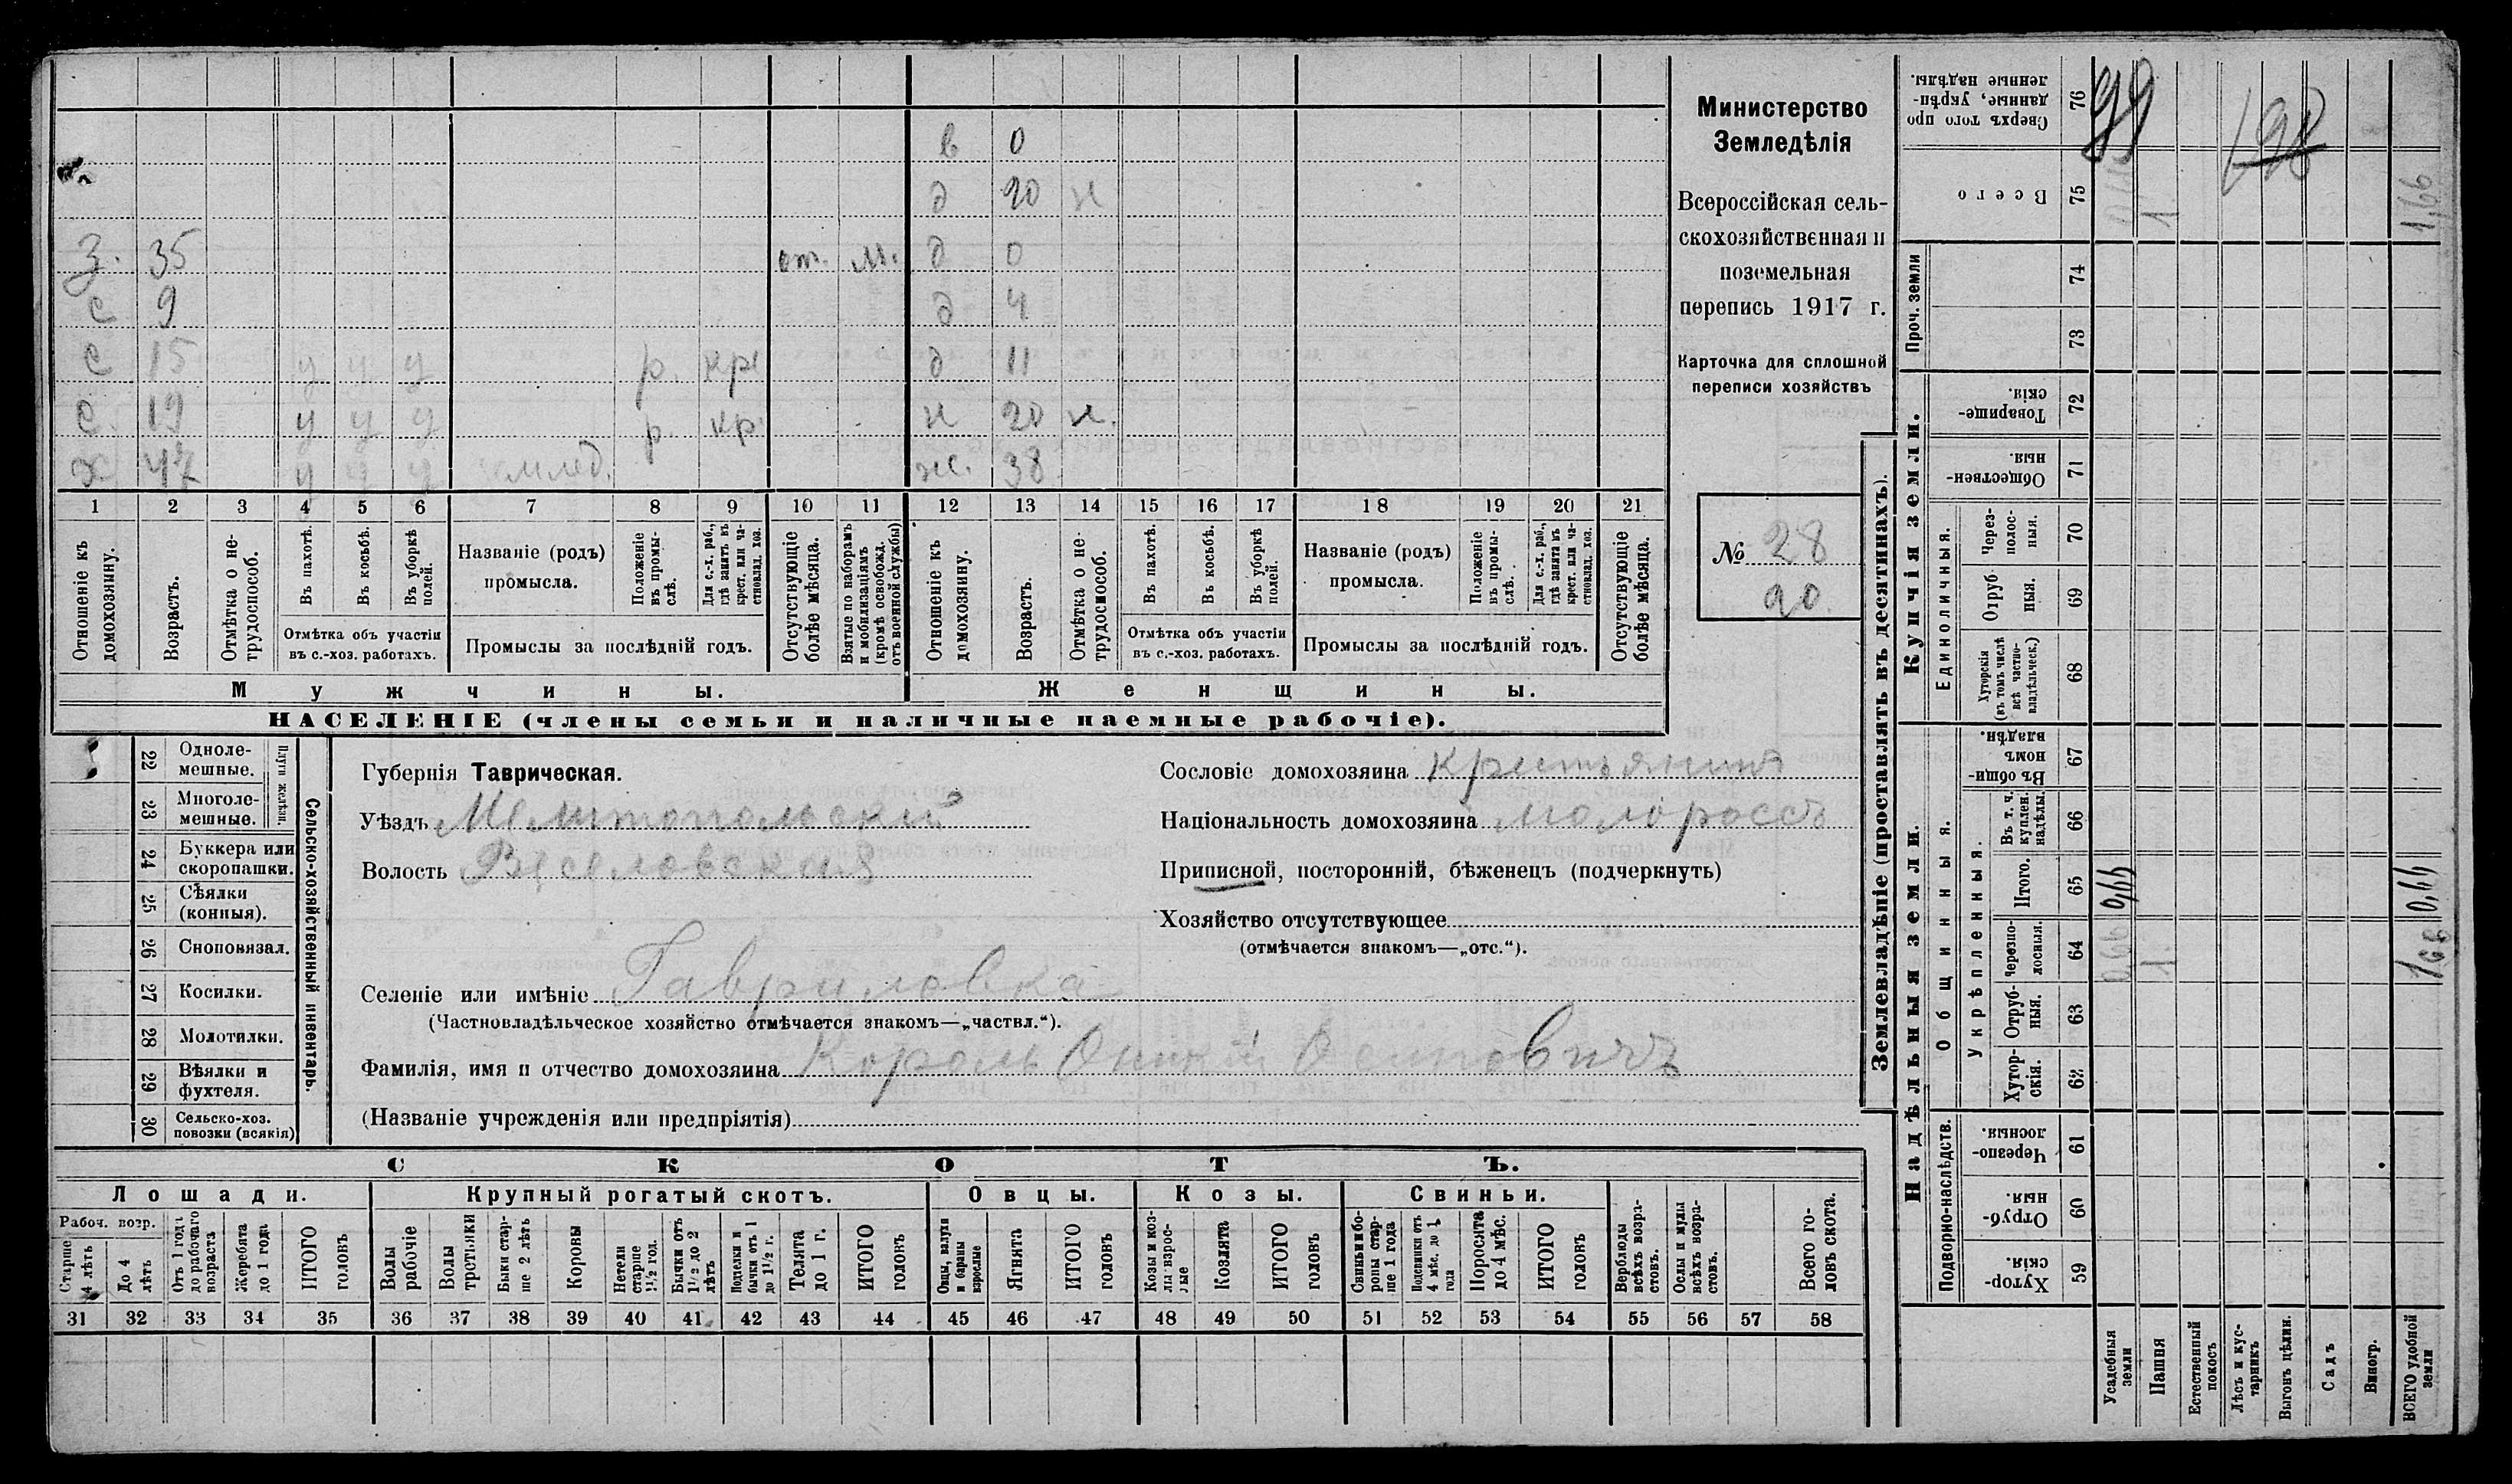 Министерство
Земледѣлія
Всероссійская сель-
скохозяйственная и
поземельная
перепись 1917 г.
Карточка для сплошной
переписи хозяйствъ
№ 28
20.
в 0
д 20 н
З. 35 от. м. д 0
с 9 д 4
с 15 у у у р. кр. д 11
с. 19 у у у р. кр. н 20 н.
х 47 у у у землед. ж. 38
1 2 3 4 5 6 7 8 9 10 11 12 13 14 15 16 17 18 19 20 21
Отношеніе къ домохозяину.
Возрастъ.
Отмѣтка о не-трудоспособ.
Въ пахотѣ.
Въ косьбѣ.
Въ уборкѣ полей.
Отмѣтка объ участіи
въ с.-хоз. работахъ.
Названіе (родъ)
промысла.
Положеніе въ промы-слѣ.
Для с.-х. раб., гдѣ занятъ въ крест. или ча-стновлад. хоз.
Промыслы за послѣдній годъ.
Отсутствующіе болѣе мѣсяца.
Взятые по наборамъ и мобилизаціямъ (кромѣ освобожд. отъ военной службы)
Отношеніе къ домохозяину.
Возрастъ.
Отмѣтка о не-трудоспособ.
Въ пахотѣ.
Въ косьбѣ.
Въ уборкѣ полей.
Отмѣтка объ участіи
въ с.-хоз. работахъ.
Названіе (родъ)
промысла.
Положеніе въ промы-слѣ.
Для с.-х. раб., гдѣ занята въ крест. или ча-стновлад. хоз.
Промыслы за послѣдній годъ.
Отсутствующіе болѣе мѣсяца.
Мужчины. Женщины.
НАСЕЛЕНІЕ (члены семьи и наличные наемные рабочіе).
Сельско-хозяйственный инвентарь.
Плуги желѣзн.
22 Одноле-мешные.
23 Многоле-мешные.
24 Буккера или скоропашки.
25 Сѣялки (конныя).
26 Сноповязал.
27 Косилки.
28 Молотилки.
29 Вѣялки и фухтеля.
30 Сельско-хоз. повозки (всякія)
Губернія Таврическая.
Уѣздъ Мелитопольскій
Волость Веселовская
Селеніе или имѣніе Гавриловка
(Частновладѣльческое хозяйство отмѣчается знакомъ—„частвл.“).
Фамилія, имя и отчество домохозяина Король Оникій Осиповичъ
(Названіе учрежденія или предпріятія)
Сословіе домохозяина крестьянинъ
Національность домохозяина малороссъ
Приписной, посторонній, бѣженецъ (подчеркнуть)
Хозяйство отсутствующее
(отмѣчается знакомъ—„отс.“).
СКОТЪ.
Лошади. Крупный рогатый скотъ. Овцы. Козы. Свиньи.
Рабоч. возр.
Старше 4 лѣтъ
До 4 лѣтъ
Отъ 1 года до рабочаго возраста
Жеребята до 1 года
ИТОГО головъ
Волы рабочіе
Волы третьяки
Быки стар-ше 2 лѣтъ
Коровы
Нетели старше 1½ год.
Бычки отъ 1½ до 2 лѣтъ
Подтелки и бычки отъ 1 до 1½ г.
Телята до 1 г.
ИТОГО головъ
Овцы, валухи и бараны взрослые
Ягнята
ИТОГО головъ
Козы и коз-лы взрос-лые
Козлята
ИТОГО головъ
Свиньи и бо-ровы стар-ше 1 года
Подсвинки отъ 4 мѣс. до 1 года
Поросята до 4 мѣс.
ИТОГО головъ
Верблюды всѣхъ возра-стовъ.
Ослы и мулы всѣхъ возра-стовъ.
Всего го-ловъ скота.
31 32 33 34 35 36 37 38 39 40 41 42 43 44 45 46 47 48 49 50 51 52 53 54 55 56 57 58
Землевладѣніе (проставлять въ десятинахъ).
Надѣльныя земли. Купчія земли. Проч. земли
Подворно-наслѣдств.
Общинныя.
Укрѣпленныя.
Единоличныя.
Сверхъ того про-данные, укрѣп-ленные надѣлы. 76 99 198
Всего 75 1. 1,66
74
73
Товарище-скія. 72
Обществен-ныя. 71
Через-полос-ныя. 70
Отруб-ныя. 69
Хуторскія (въ томъ числѣ всѣ частно-владѣльческ.) 68
Въ общи-номъ владѣн. 67
Въ т. ч. куплен. надѣлы. 66
Итого. 65 0,66 0,66
черезпо-лосныя. 64 0,66 1. 1,66
Отруб-ныя. 63
Хутор-скія. 62
Черезпо-лосныя. 61
Отруб-ныя. 60
Хутор-скія. 59
Усадебныя земли
Пашня
Естественный покосъ
Лѣсъ и кус-тарникъ
Выгонъ цѣлин.
Садъ
Виногр.
ВСЕГО удобной земли